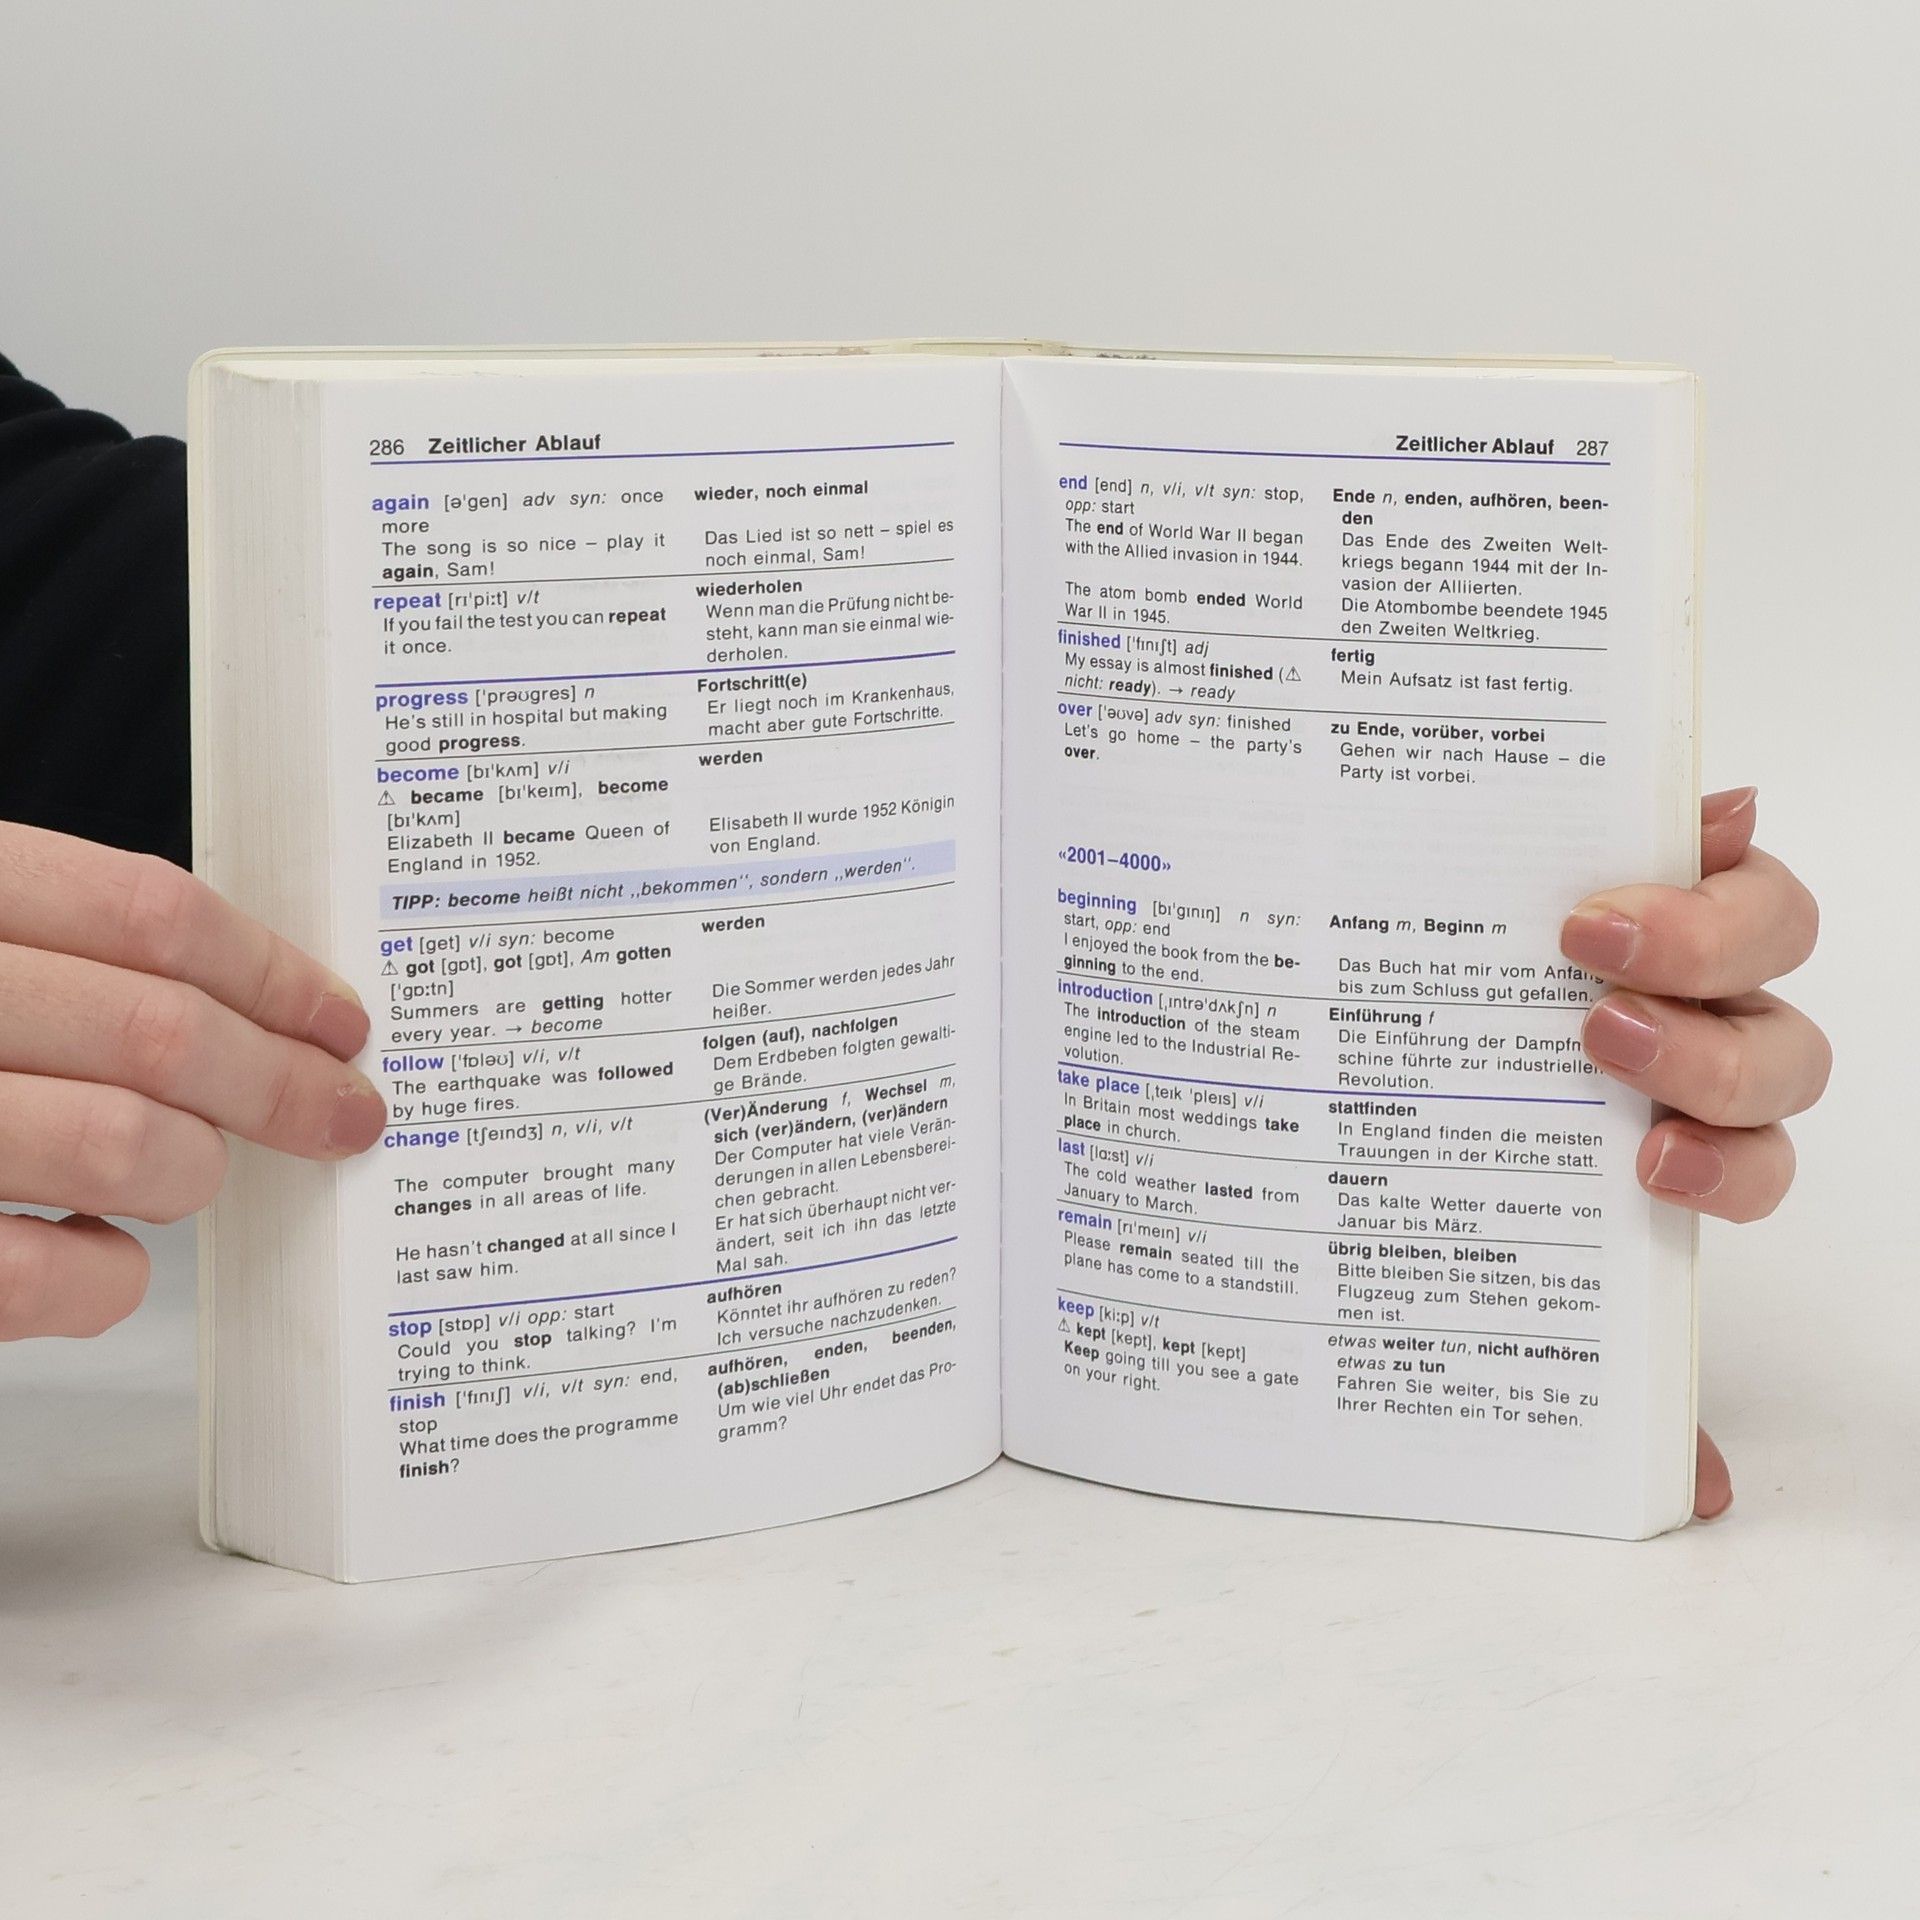 286 Zeitlicher Ablauf
again [ə'gen] adv syn: once
more
The song is so nice – play it
again, Sam!
wieder, noch einmal
Das Lied ist so nett – spiel es
noch einmal, Sam!
repeat [rɪ'piːt] v/t
If you fail the test you can repeat
it once.
wiederholen
Wenn man die Prüfung nicht be-
steht, kann man sie einmal wie-
derholen.
progress ['prəʊgres] n
He's still in hospital but making
good progress.
Fortschritt(e)
Er liegt noch im Krankenhaus,
macht aber gute Fortschritte.
become [bɪ'kʌm] v/i
⚠ became [bɪ'keɪm], become
[bɪ'kʌm]
Elizabeth II became Queen of
England in 1952.
werden
Elisabeth II wurde 1952 Königin
von England.
TIPP: become heißt nicht „bekommen“, sondern „werden“.
get [get] v/i syn: become
⚠ got [gɒt], got [gɒt], Am gotten
['gɒːtn]
Summers are getting hotter
every year. → become
werden
Die Sommer werden jedes Jahr
heißer.
follow ['fɒləʊ] v/i, v/t
The earthquake was followed
by huge fires.
folgen (auf), nachfolgen
Dem Erdbeben folgten gewalti-
ge Brände.
change [tʃeɪndʒ] n, v/i, v/t
The computer brought many
changes in all areas of life.
He hasn't changed at all since I
last saw him.
(Ver)Änderung f, Wechsel m,
sich (ver)ändern, (ver)ändern
Der Computer hat viele Verän-
derungen in allen Lebensberei-
chen gebracht.
Er hat sich überhaupt nicht ver-
ändert, seit ich ihn das letzte
Mal sah.
stop [stɒp] v/i opp: start
Could you stop talking? I'm
trying to think.
aufhören
Könntet ihr aufhören zu reden?
Ich versuche nachzudenken.
finish ['fɪnɪʃ] v/i, v/t syn: end,
stop
What time does the programme
finish?
aufhören, enden, beenden,
(ab)schließen
Um wie viel Uhr endet das Pro-
gramm?
Zeitlicher Ablauf 287
end [end] n, v/i, v/t syn: stop,
opp: start
The end of World War II began
with the Allied invasion in 1944.
The atom bomb ended World
War II in 1945.
Ende n, enden, aufhören, been-
den
Das Ende des Zweiten Welt-
kriegs begann 1944 mit der In-
vasion der Alliierten.
Die Atombombe beendete 1945
den Zweiten Weltkrieg.
finished ['fɪnɪʃt] adj
My essay is almost finished (⚠
nicht: ready). → ready
fertig
Mein Aufsatz ist fast fertig.
over ['əʊvə] adv syn: finished
Let's go home – the party's
over.
zu Ende, vorüber, vorbei
Gehen wir nach Hause – die
Party ist vorbei.
«2001–4000»
beginning [bɪ'gɪnɪŋ] n syn:
start, opp: end
I enjoyed the book from the be-
ginning to the end.
Anfang m, Beginn m
Das Buch hat mir vom Anfang
bis zum Schluss gut gefallen.
introduction [ˌɪntrə'dʌkʃn] n
The introduction of the steam
engine led to the Industrial Re-
volution.
Einführung f
Die Einführung der Dampfm
schine führte zur industriellen
Revolution.
take place [ˌteɪk 'pleɪs] v/i
In Britain most weddings take
place in church.
stattfinden
In England finden die meisten
Trauungen in der Kirche statt.
last [lɑːst] v/i
The cold weather lasted from
January to March.
dauern
Das kalte Wetter dauerte von
Januar bis März.
remain [rɪ'meɪn] v/i
Please remain seated till the
plane has come to a standstill.
übrig bleiben, bleiben
Bitte bleiben Sie sitzen, bis das
Flugzeug zum Stehen gekom-
men ist.
keep [kiːp] v/t
⚠ kept [kept], kept [kept]
Keep going till you see a gate
on your right.
etwas weiter tun, nicht aufhören
etwas zu tun
Fahren Sie weiter, bis Sie zu
Ihrer Rechten ein Tor sehen.